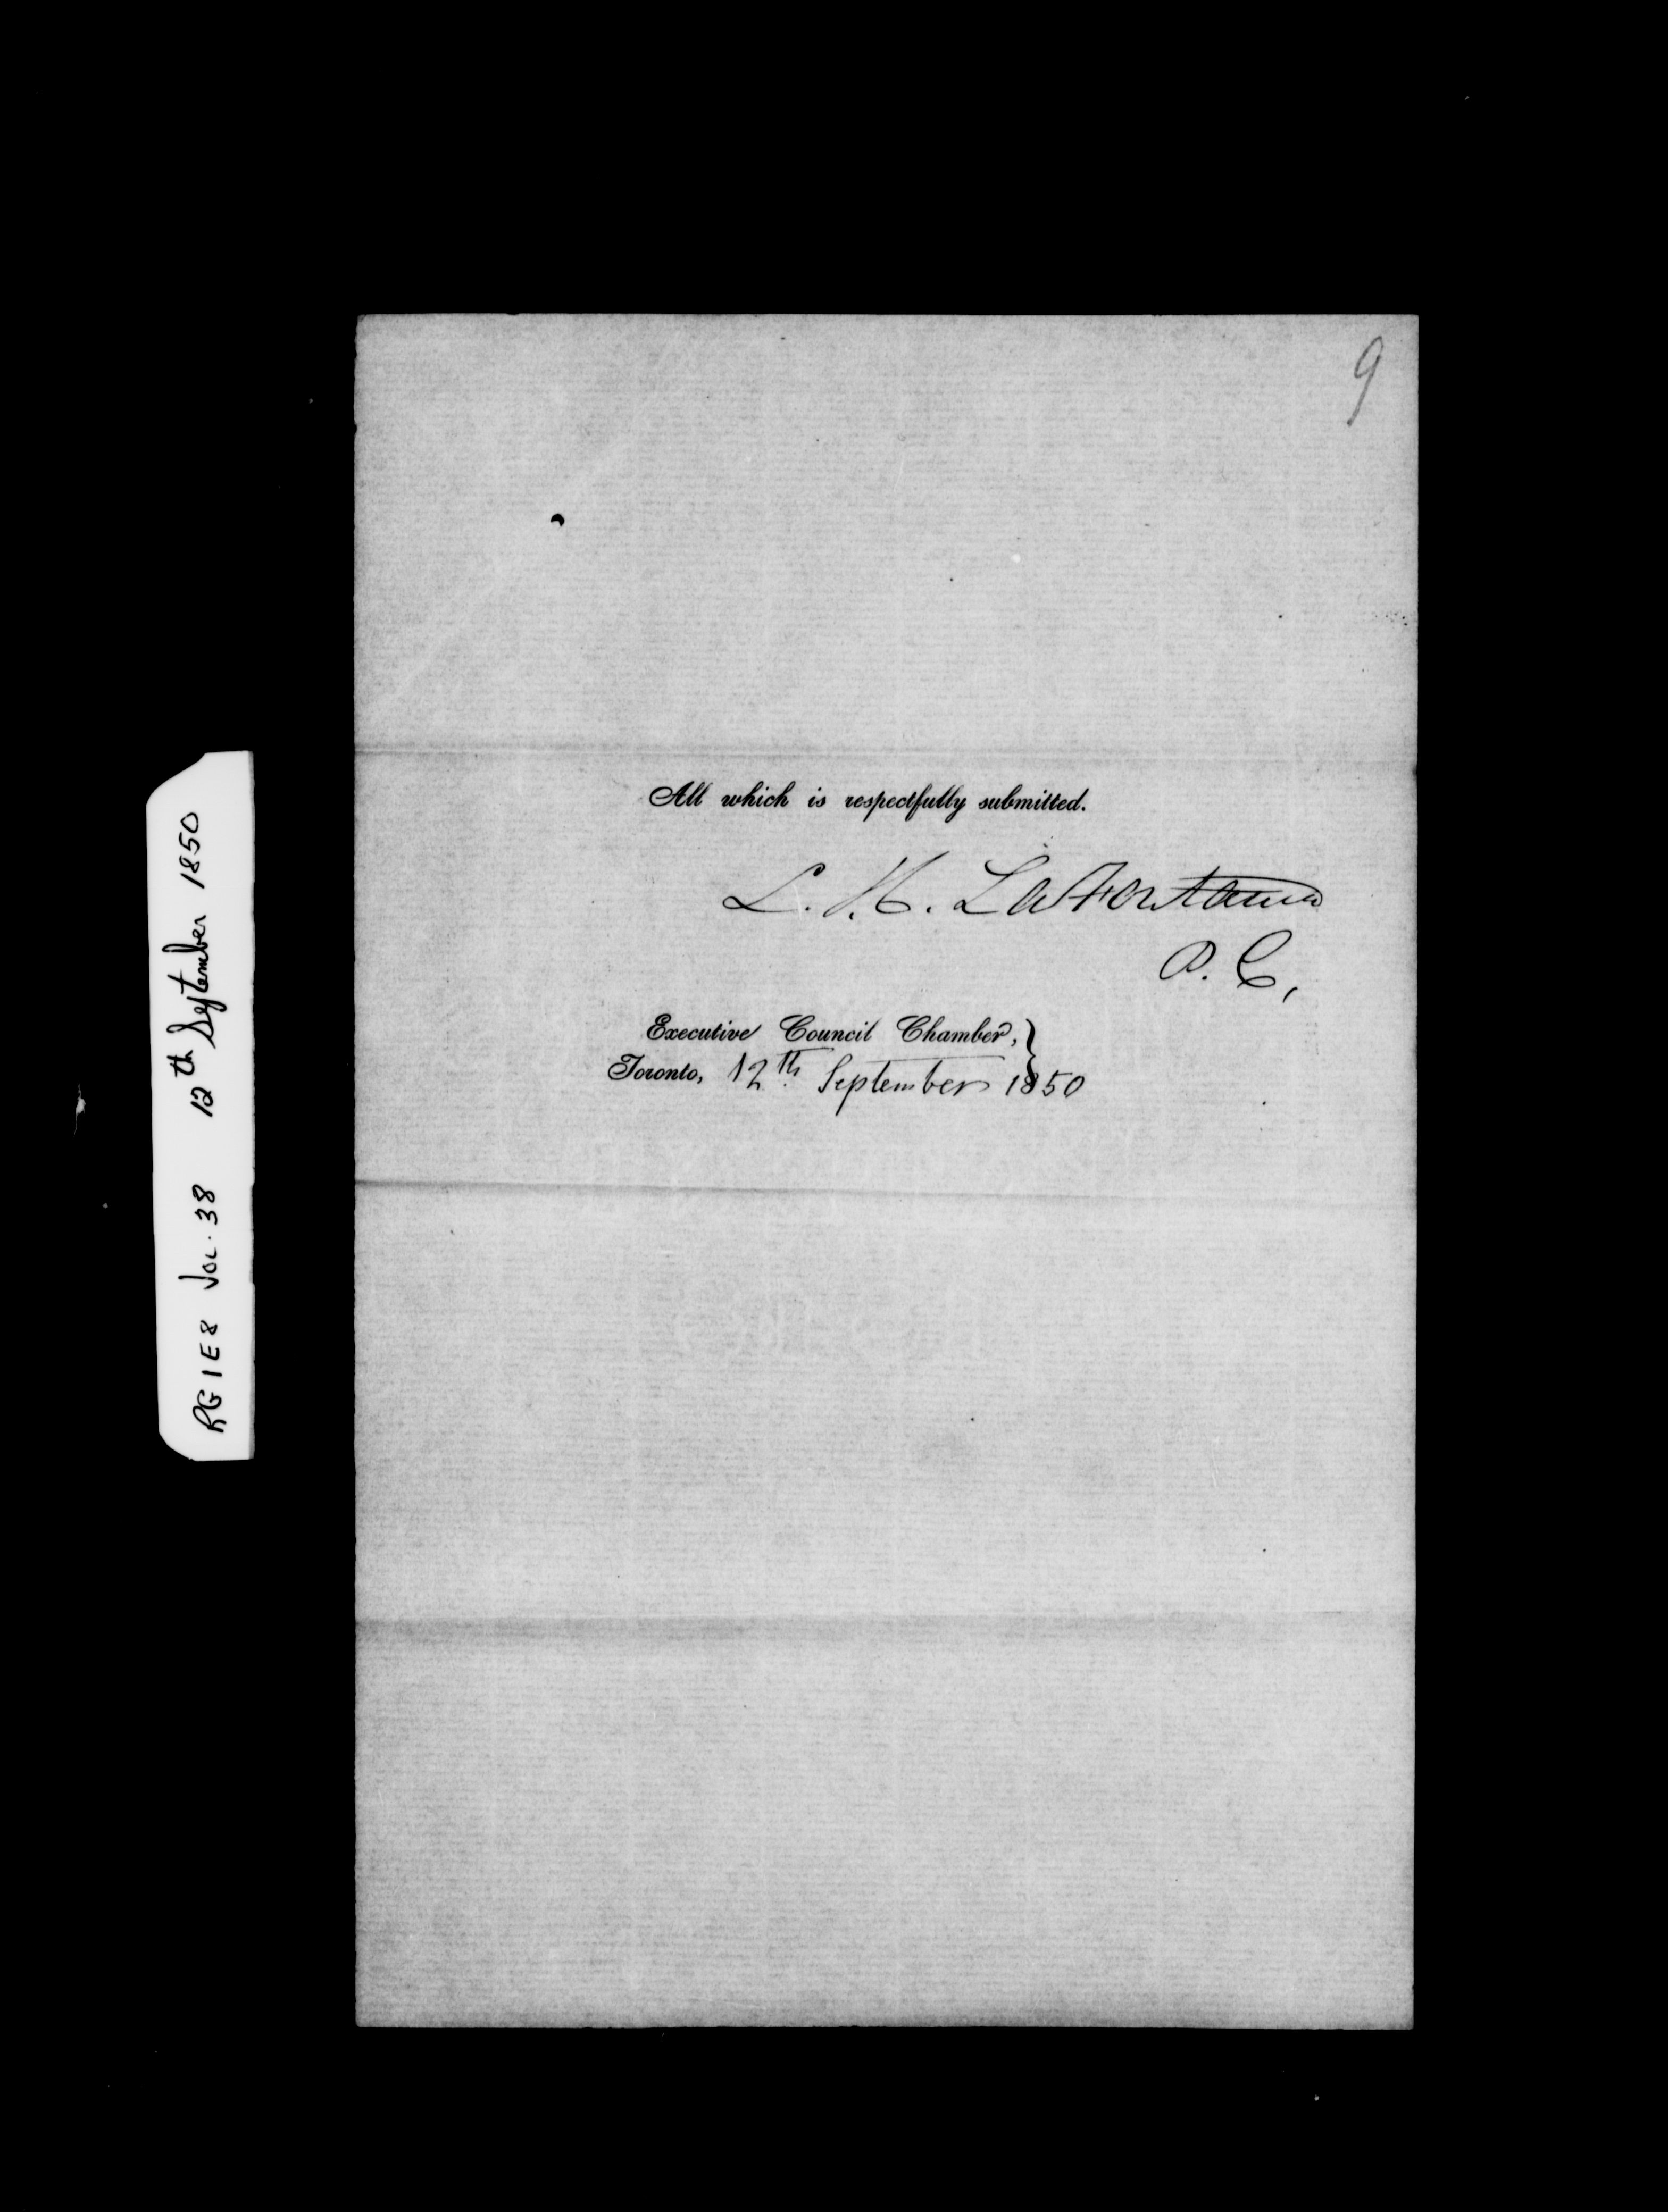 9
All which is respectfully submitted.
L. H. LaFontaine
P. C,
Executive Council Chamber,
Toronto, 12th September 1850
RG1E8 Vol. 38 12th September 1850